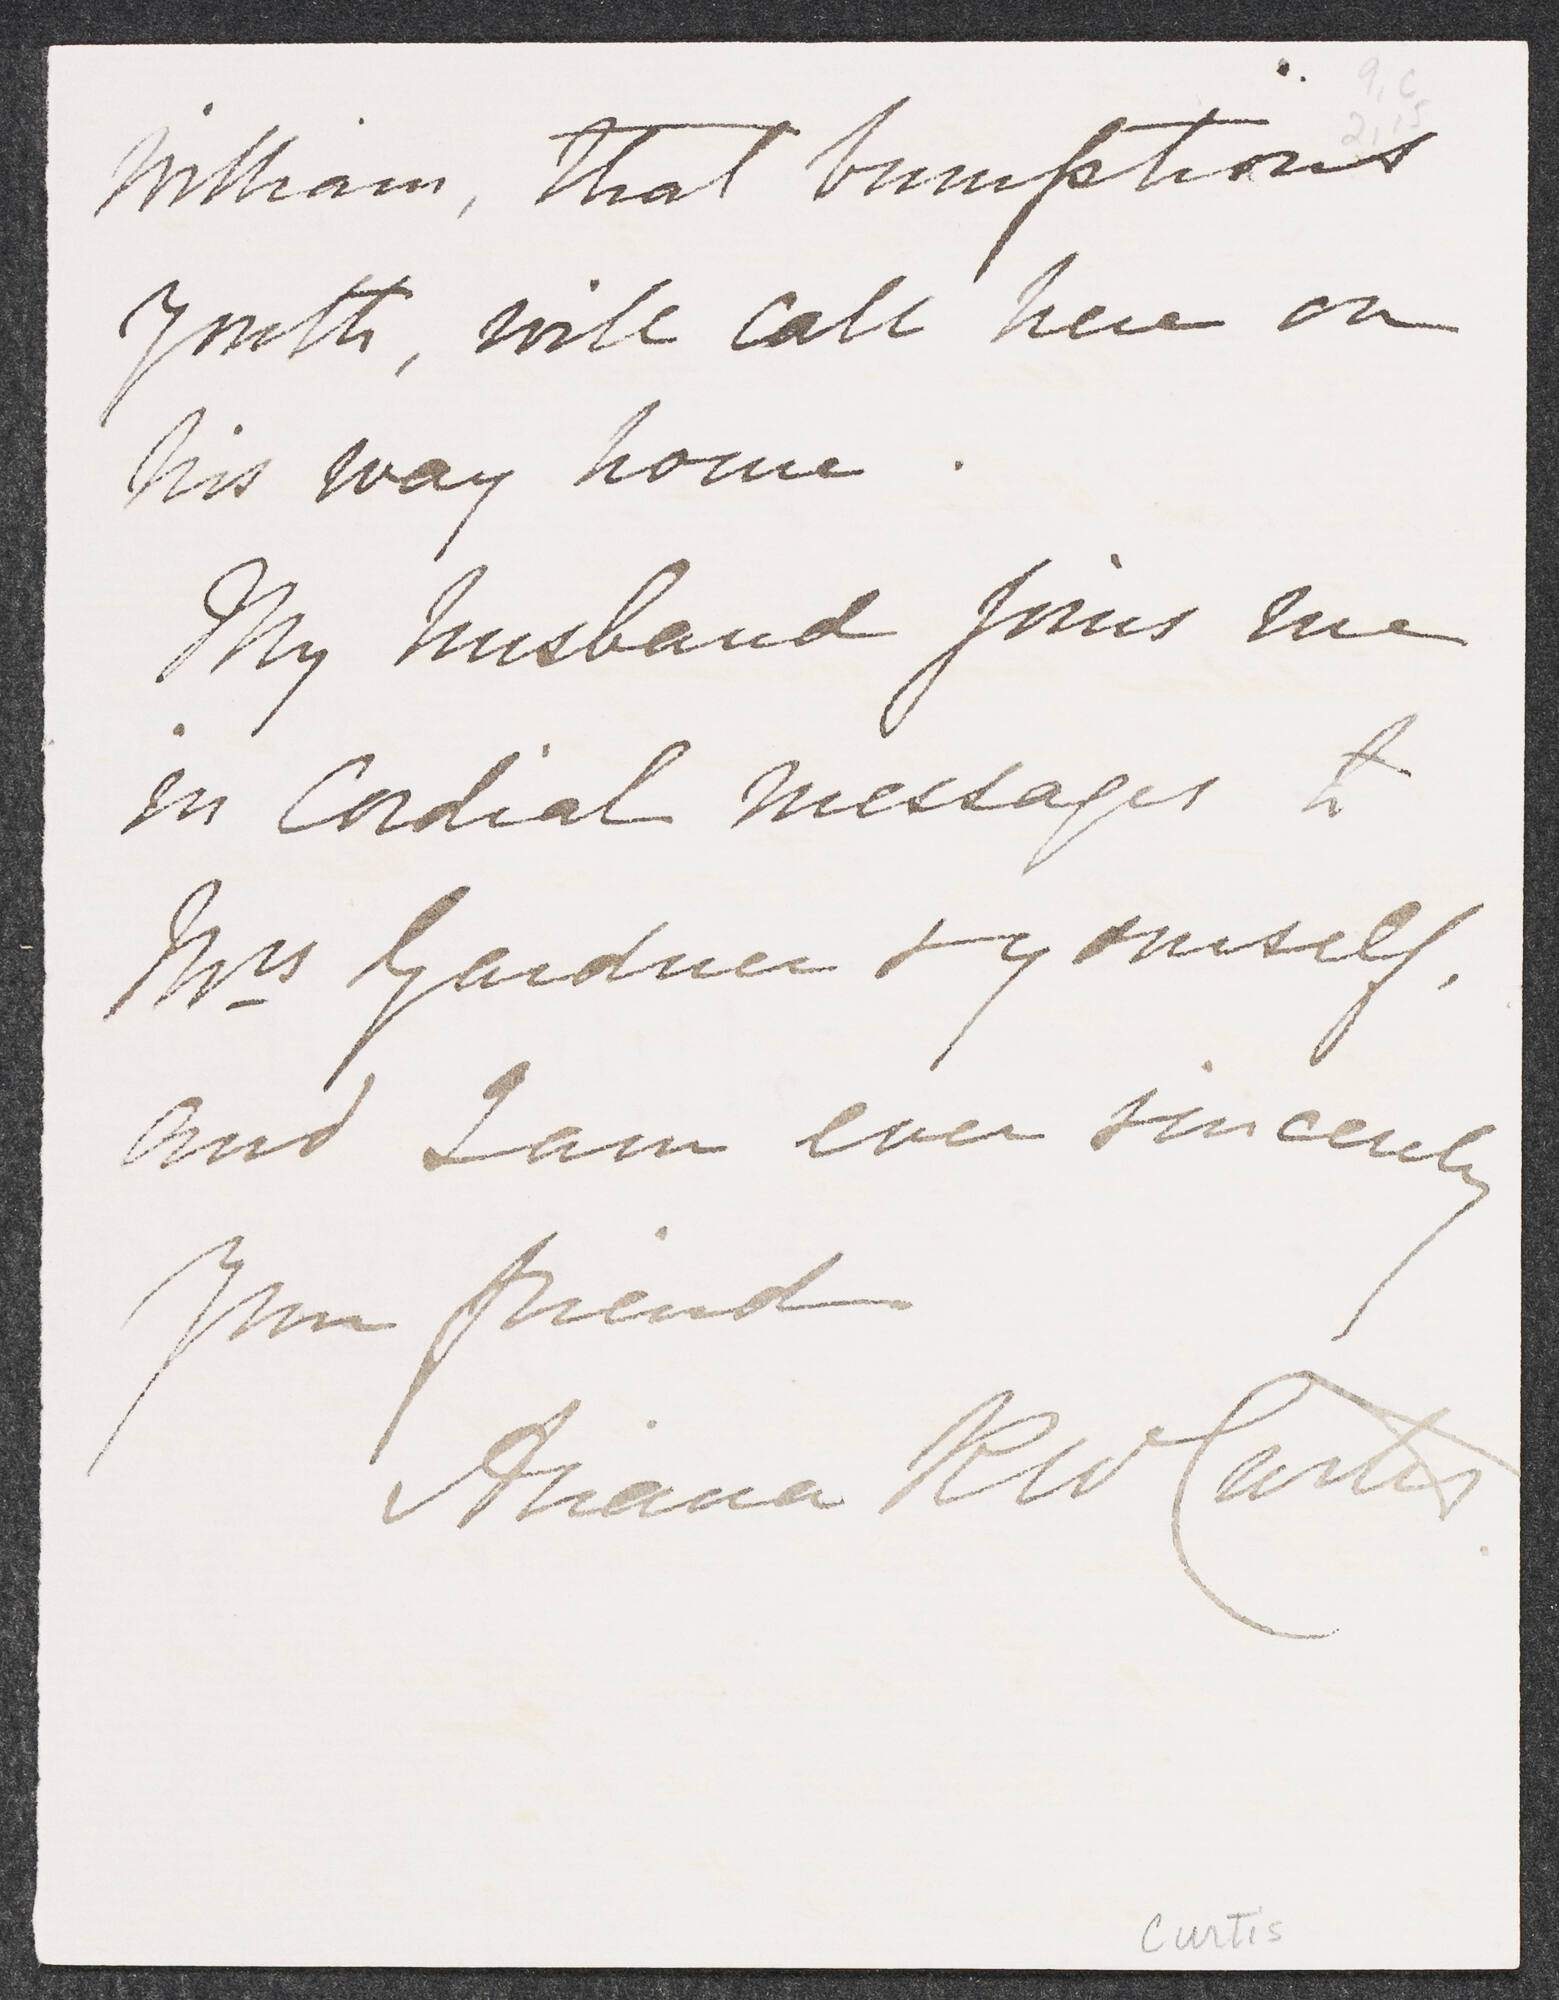 9, C
2, 15
William, that bumptious
youth, will call here on
his way home.
My husband joins me
in cordial messages to
Mrs Gardner & yourself.
and I am ever sincerely
Your friend
Ariana R W Curtis.
Curtis